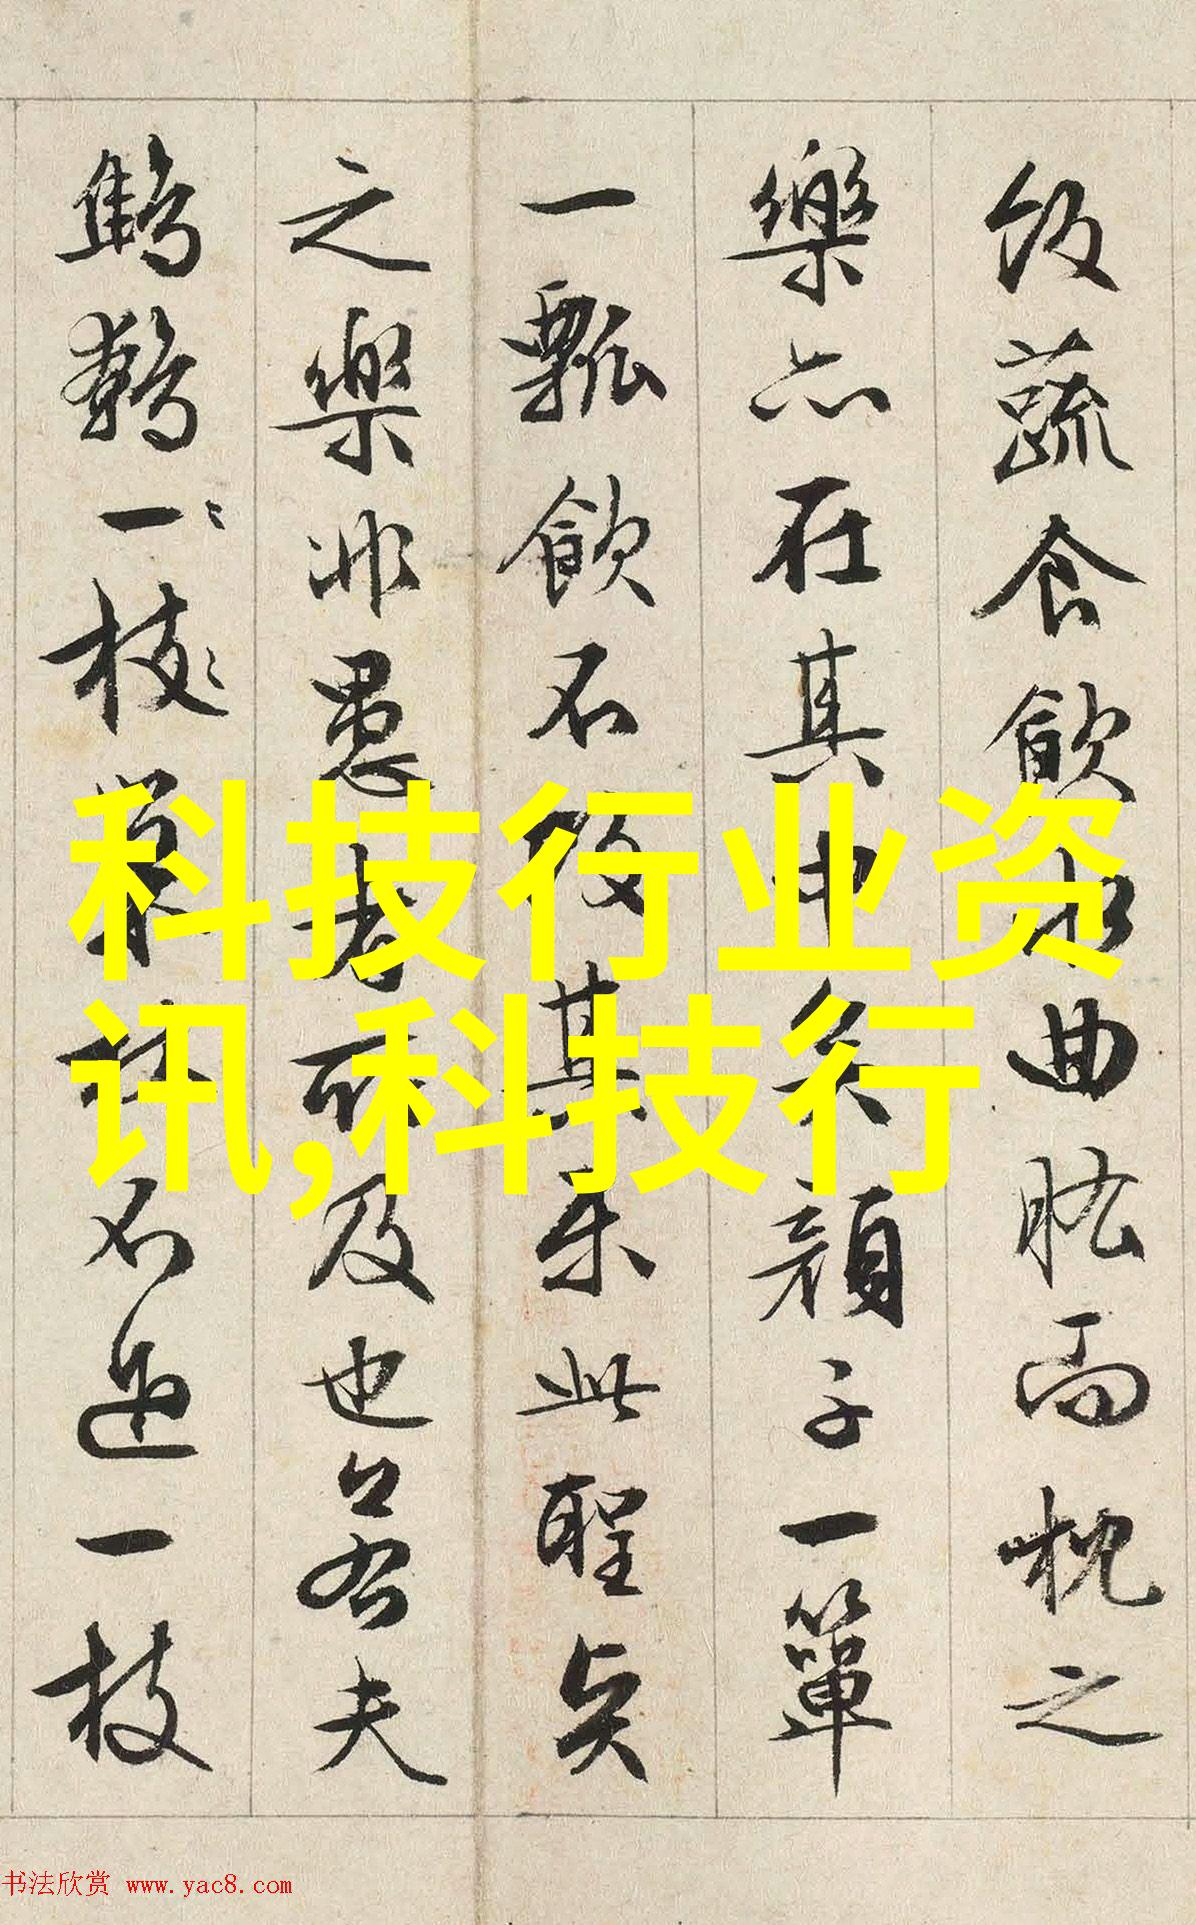 飯蔬食飲水曲肱而枕之
樂亦在其中矣顏子一簞
一瓢飲不改其樂此聖賢
之樂非愚者所及也若夫
鷦鷯一枝巢林不過一枝
科技行业资
讯,科技行
书法欣赏 www.yac8.com